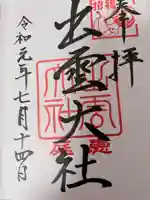 奉拝
出雲大社
令和元年七月十四日